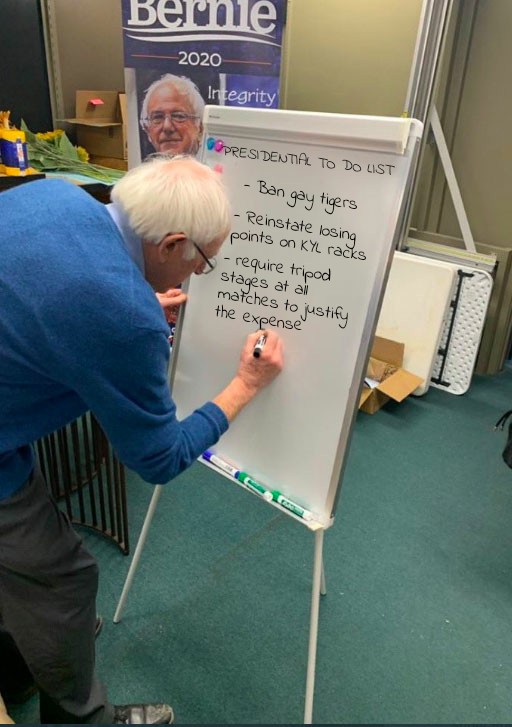 Bernie
2020
Integrity
PRESIDENTIAL TO DO LIST
- Ban gay tigers
- Reinstate losing
points on KYL racks
- require tripod
stages at all
matches to justify
the expense